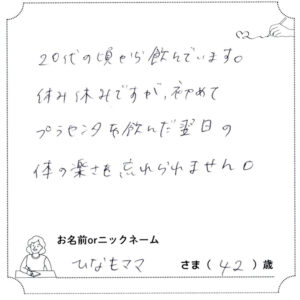 20代の頃から飲んでいます。
休み休みですが、初めて
プラセンタを飲んだ翌日の
体の楽さを忘れられません。
お名前orニックネーム
ひなもママ さま(42)歳